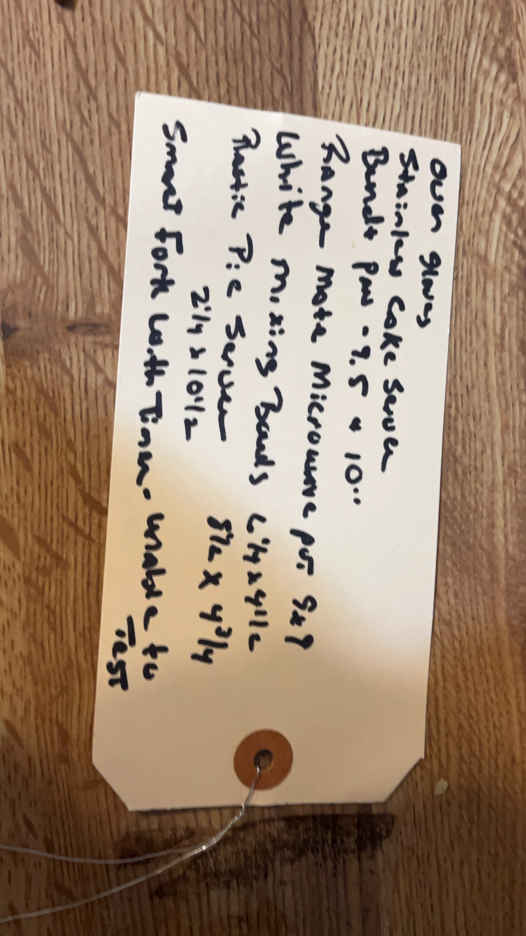 oven gloves
Stainless Cake Server
Bundt pan - 9.5 x 10"
Range Mate Microwave pan 9x9
White Mixing Bowls 6 1/4 x 4 1/2
8 1/2 x 4 3/4
Plastic Pie Server
2 1/4 x 10 1/2
Smart Fork with Timer - unable to
Test